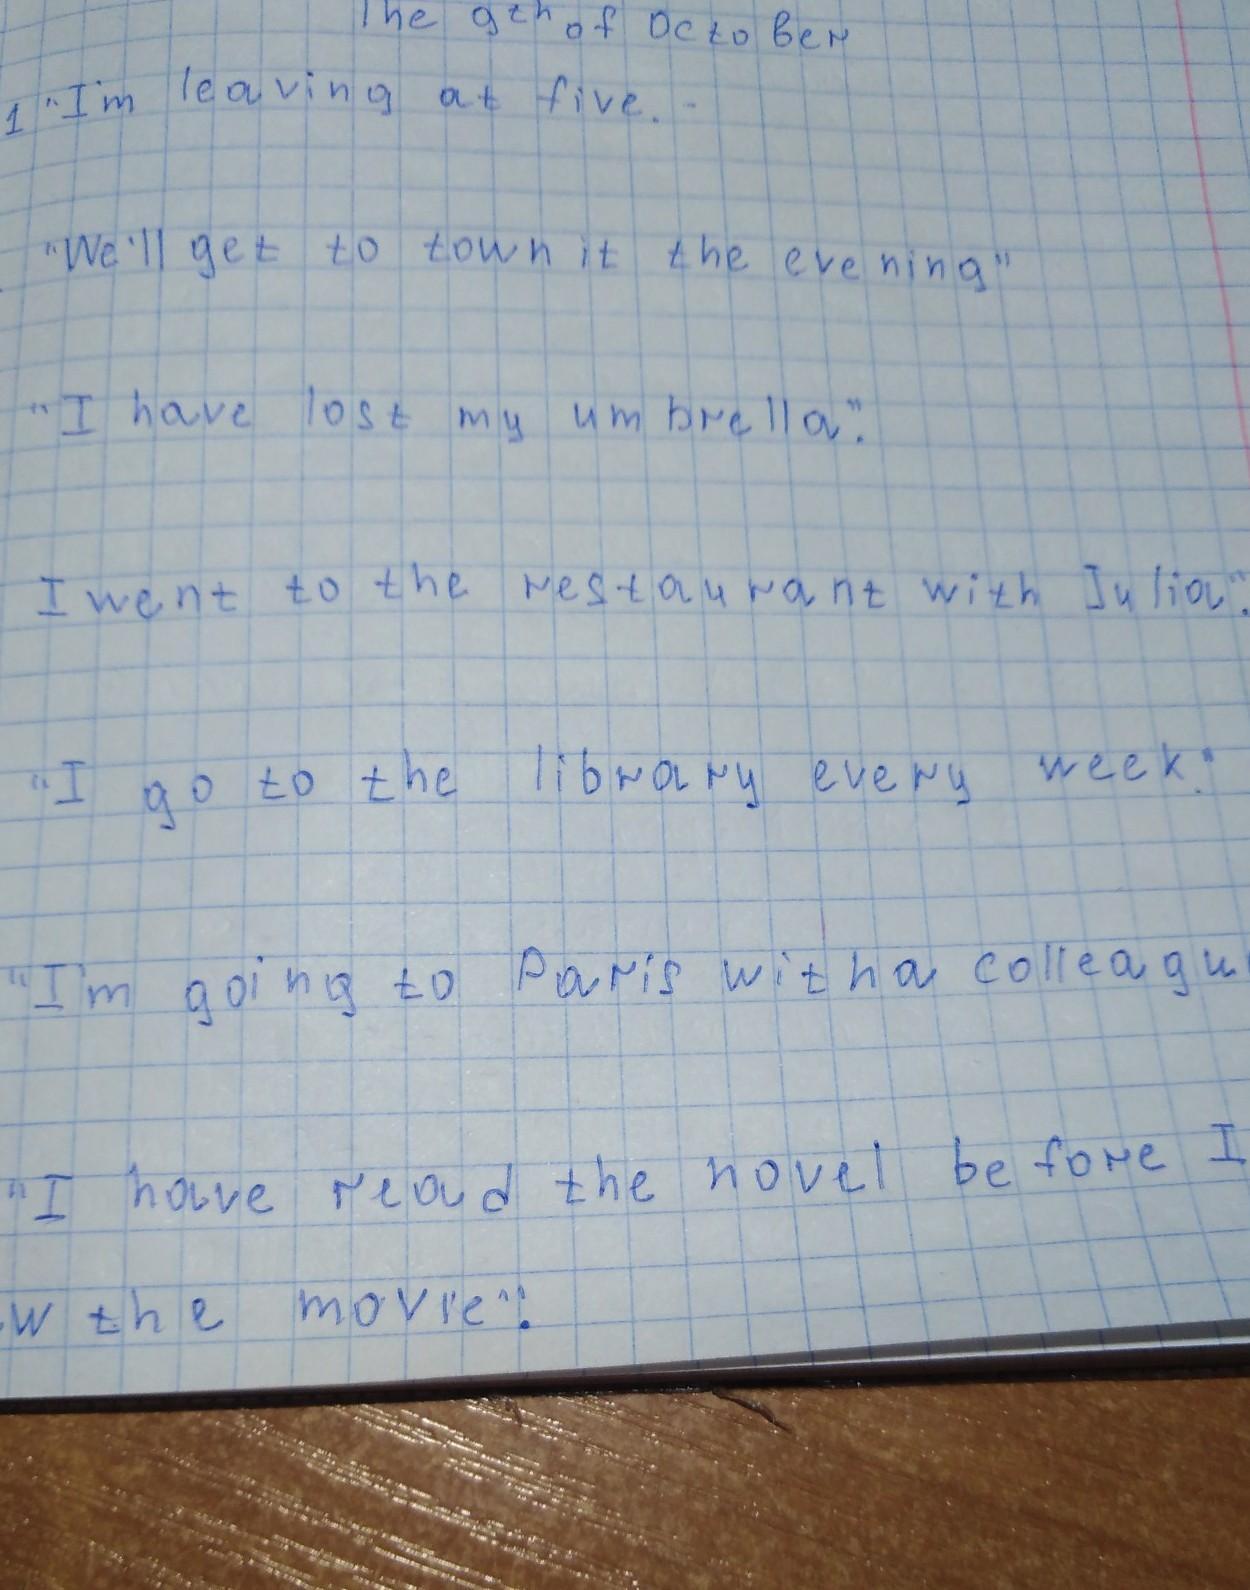 The 9th of October
1 "I'm leaving at five.
"We'll get to town it the evening"
"I have lost my umbrella".
I went to the restaurant with Julia".
"I go to the library every week."
"I'm going to Paris with a colleagu
"I have read the novel before I
w the movie".